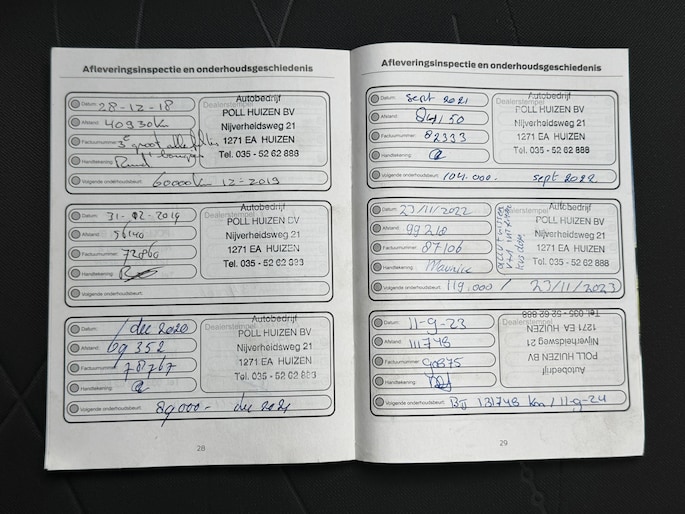 Afleveringsinspectie en onderhoudsgeschiedenis
Datum: 28-12-18
Afstand: 40930 km
Factuurnummer: 3e groot alle filters
Handtekening:
Volgende onderhoudsbeurt: 60000 km 12-2019
Dealerstempel
Autobedrijf
POLL HUIZEN BV
Nijverheidsweg 21
1271 EA HUIZEN
Tel. 035 - 52 62 888
Datum: 31-12-2019
Afstand: 56140
Factuurnummer: 72860
Handtekening:
Volgende onderhoudsbeurt:
Dealerstempel
Autobedrijf
POLL HUIZEN BV
Nijverheidsweg 21
1271 EA HUIZEN
Tel. 035 - 52 62 888
Datum: 1 dec 2020
Afstand: 69352
Factuurnummer: 78767
Handtekening:
Volgende onderhoudsbeurt: 89000- dec 2021
Dealerstempel
Autobedrijf
POLL HUIZEN BV
Nijverheidsweg 21
1271 EA HUIZEN
Tel. 035 - 52 62 888
28
Afleveringsinspectie en onderhoudsgeschiedenis
Datum: sept 2021
Afstand: 84150
Factuurnummer: 82333
Handtekening:
Volgende onderhoudsbeurt: 104.000. sept 2022
Dealerstempel
Autobedrijf
POLL HUIZEN BV
Nijverheidsweg 21
1271 EA HUIZEN
Tel. 035 - 52 62 888
Datum: 23/11/2022
Afstand: 99210
Factuurnummer: 87106
Handtekening: Maurice
Volgende onderhoudsbeurt: 119.000 / 23/11/2023
Dealerstempel
Autobedrijf
POLL HUIZEN BV
Nijverheidsweg 21
1271 EA HUIZEN
Tel. 035 - 52 62 888
Datum: 11-9-23
Afstand: 111748
Factuurnummer: 90875
Handtekening:
Volgende onderhoudsbeurt: 131748 km / 11-9-24
Autobedrijf
POLL HUIZEN BV
Nijverheidsweg 21
1271 EA HUIZEN
Tel. 035 - 52 62 888
29